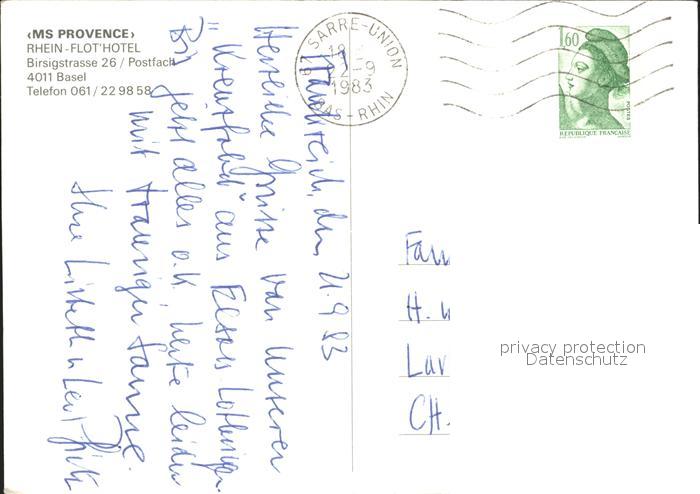 ‹MS PROVENCE›
RHEIN-FLOT'HOTEL
Birsigstrasse 26 / Postfach
4011 Basel
Telefon 061 / 22 98 58
67 SARRE-UNION
2-9
1983
BAS-RHIN
1,60
POSTES
REPUBLIQUE FRANÇAISE
Frankreich, den 21.9.83
Herzliche Grüsse von unserer
"Kreuzfahrt" aus Elsass-Lothringen.
Bis jetzt alles o.k. heute leider
mit trauriger Sonne.
Ihre Lisbeth u
Fam
H. u
Lau
CH.
privacy protection
Datenschutz